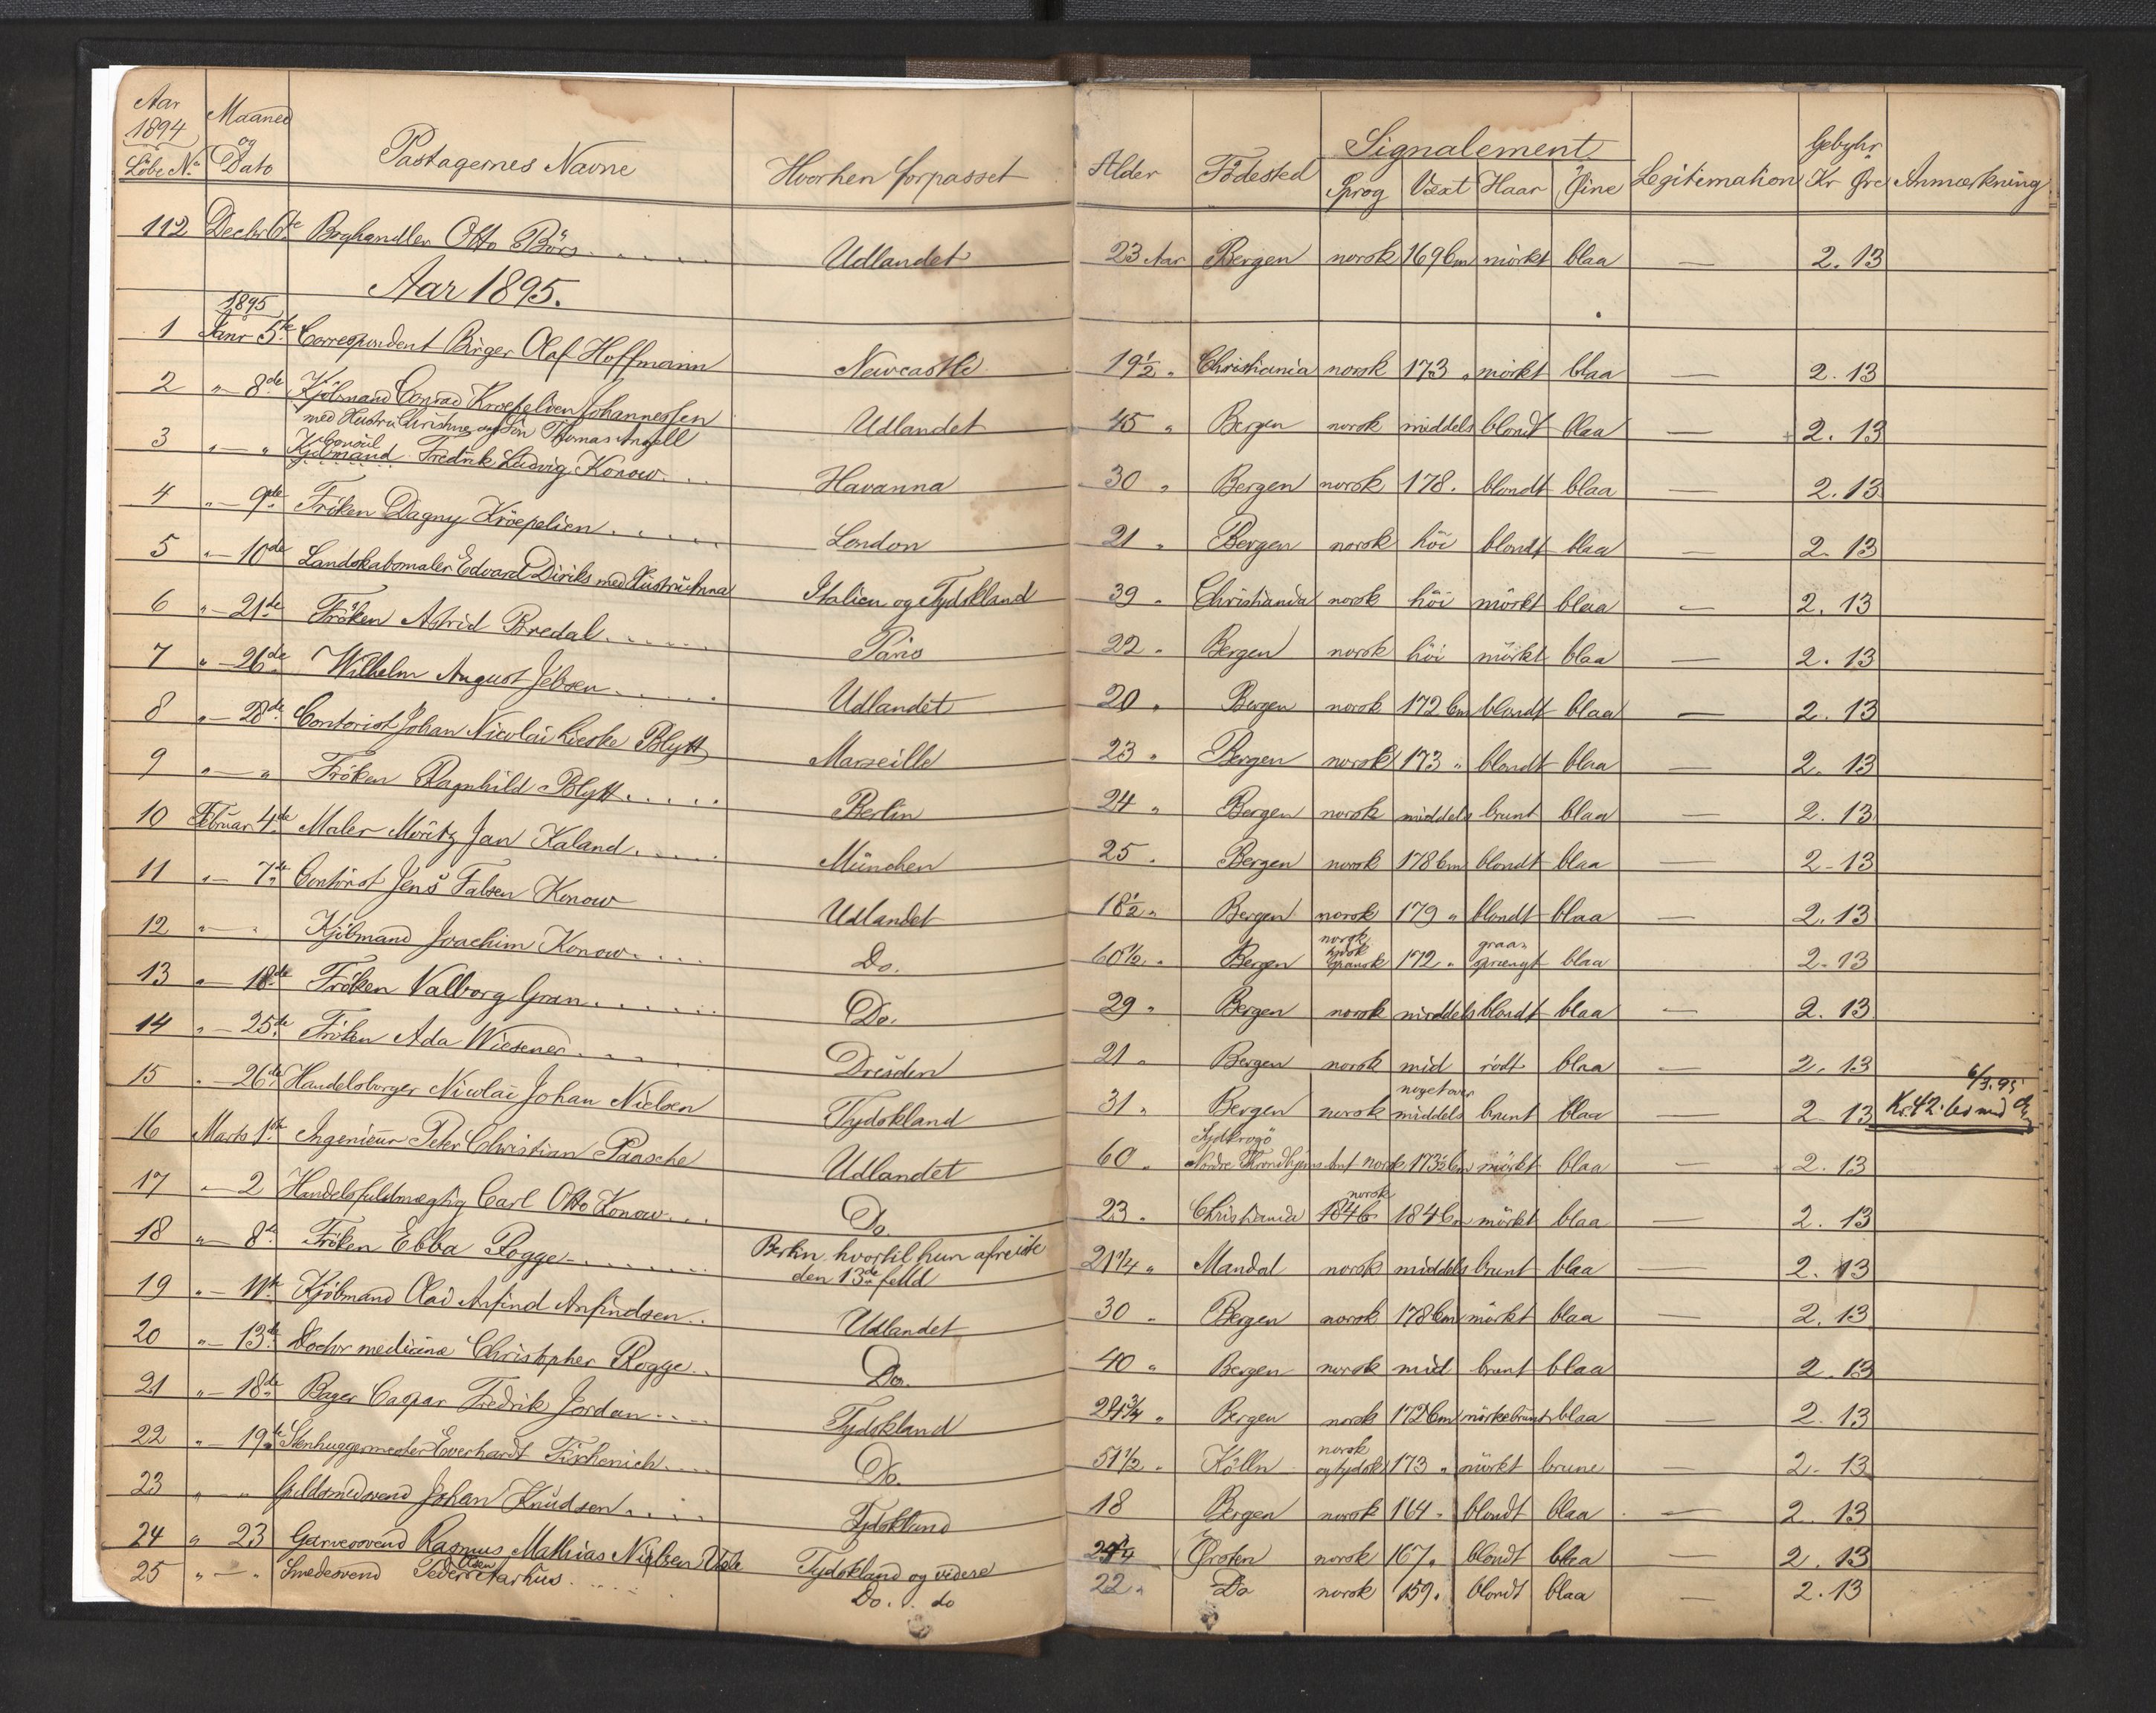 Aar 1894 Löbe No Maaned og Dato Pastagernes Navne Hvorhen forpasset Alder Födested Signalement Sprog Växt Haar Öine Legitimation Gebyhr Kr Öre Anmærkning
112 Decbr 6te Boghandler Otto Börs Udlandet 23 Aar Bergen norsk 169 Cm mörkt blaa — 2.13
Aar 1895.
1895
1 Janr 5te Correspondent Birger Olaf Hoffmann Newcastle 19 1/2 " Christiania norsk 173 " mörkt blaa — 2.13
2 " — 8de Kjöbmand Conrad Kroepelien Johannessen
med Hustru Christine og Sön Thomas Angell Udlandet 45 " Bergen norsk middels blondt blaa — 2.13
3 " — " Consul
Kjöbmand Fredrik Ludvig Konow Havanna 30 " Bergen norsk 178 . blondt blaa — 2.13
4 " — 9de Fröken Dagny Kröepelien London 21 " Bergen norsk höi blondt blaa — 2.13
5 " — 10de Landskabsmaler Edvard Diriks med Hustru Anna Italien og Tydskland 39 " Christiania norsk höi mörkt blaa — 2.13
6 " — 21de Fröken Astrid Bredal Paris 22 " Bergen norsk höi mörkt blaa — 2.13
7 " — 26de Wilhelm August Jebsen Udlandet 20 " Bergen norsk 172 Cm blondt blaa — 2.13
8 " — 28de Contorist Johan Nicolai Kieske Blytt Marseille 23 " Bergen norsk 173 " blondt blaa — 2.13
9 " — " Fröken Ragnhild Blytt Berlin 24 " Bergen norsk middels brunt blaa — 2.13
10 Februar 4de Maler Moritz Jan Kaland München 25 " Bergen norsk 178 Cm blondt blaa — 2-13
11 " — 7de Contorist Jens Falsen Konow Udlandet 18 1/2 " Bergen norsk 179 " blondt blaa — 2.13
12 " — " Kjöbmand Joachim Konow Do. 60 1/2 " Bergen norsk tydsk spansk 172 " graasprængt blaa 2-13
13 " — 18de Fröken Valborg Gran Do. 29 " Bergen norsk middels blondt blaa — 2.13
14 " — 25de Fröken Ada Wiesener Dresden 21 " Bergen norsk mid rödt blaa — 2.13
15 " — 26de Handelsborger Nicolai Johan Nielsen Tydskland 31 " Bergen norsk noget over middels brunt blaa — 2-13 6/3.95 Kr. 42
16 Marts 1ste Ingenieur Peter Christian Paasche Udlandet 60 " Nordre Throndhjems Amt norsk 173 1/2 Cm mörkt blaa — 2.13
17 " — 2 Handelsfuldmægtig Carl Otto Konow Do. 23 " Christiania norsk 184 Cm mörkt blaa — 2.13
18 " — 8de Fröken Ebba Rogge Berlin hvortil hun afreiste
den 13de 21 1/4 " Mandal norsk middels brunt blaa — 2.13
19 " — 11te Kjöbmand Olai Anfind Anfindsen Udlandet 30 " Bergen norsk 178 Cm mörkt blaa — 2.13
20 " — 13de Doctor medicinæ Christopher Rogge Do. 40 " Bergen norsk mid brunt blaa 2.13
21 " — 18de Bager Caspar Fredrik Jordan Tydskland 24 3/4 " Bergen norsk 172 Cm mörkebrunt blaa — 2.13
22 " — 19de Stenhuggermester Everhardt Fischenich Do. 51 1/2 " Kölln norsk og tydsk 173 " mörkt brune — 2.13
23 " — " Guldsmedsvend Johan Knudsen Tydskland 18 Bergen norsk 164 " blondt blaa — 2.13
24 " 23 Garversvend Rasmus Mathias Nielsen Tydskland og videre Örsten norsk 167. blondt blaa — 2.13
25 " — " Smedesvend Peder Olsen Aarhus Do. . do 22 " Do norsk 159. blondt blaa — 2.13